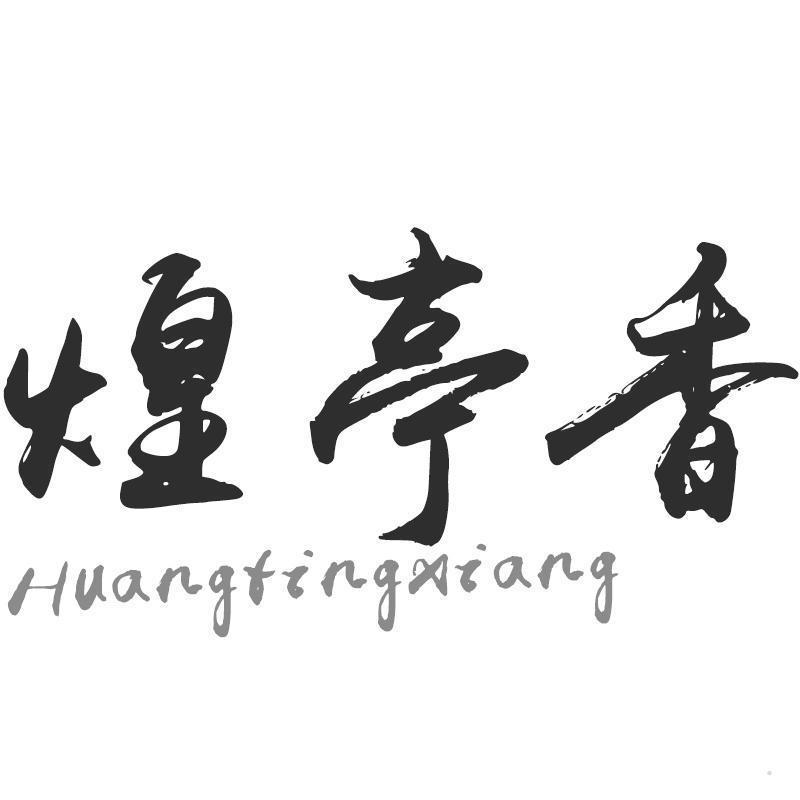 煌亭香
Huangtingxiang